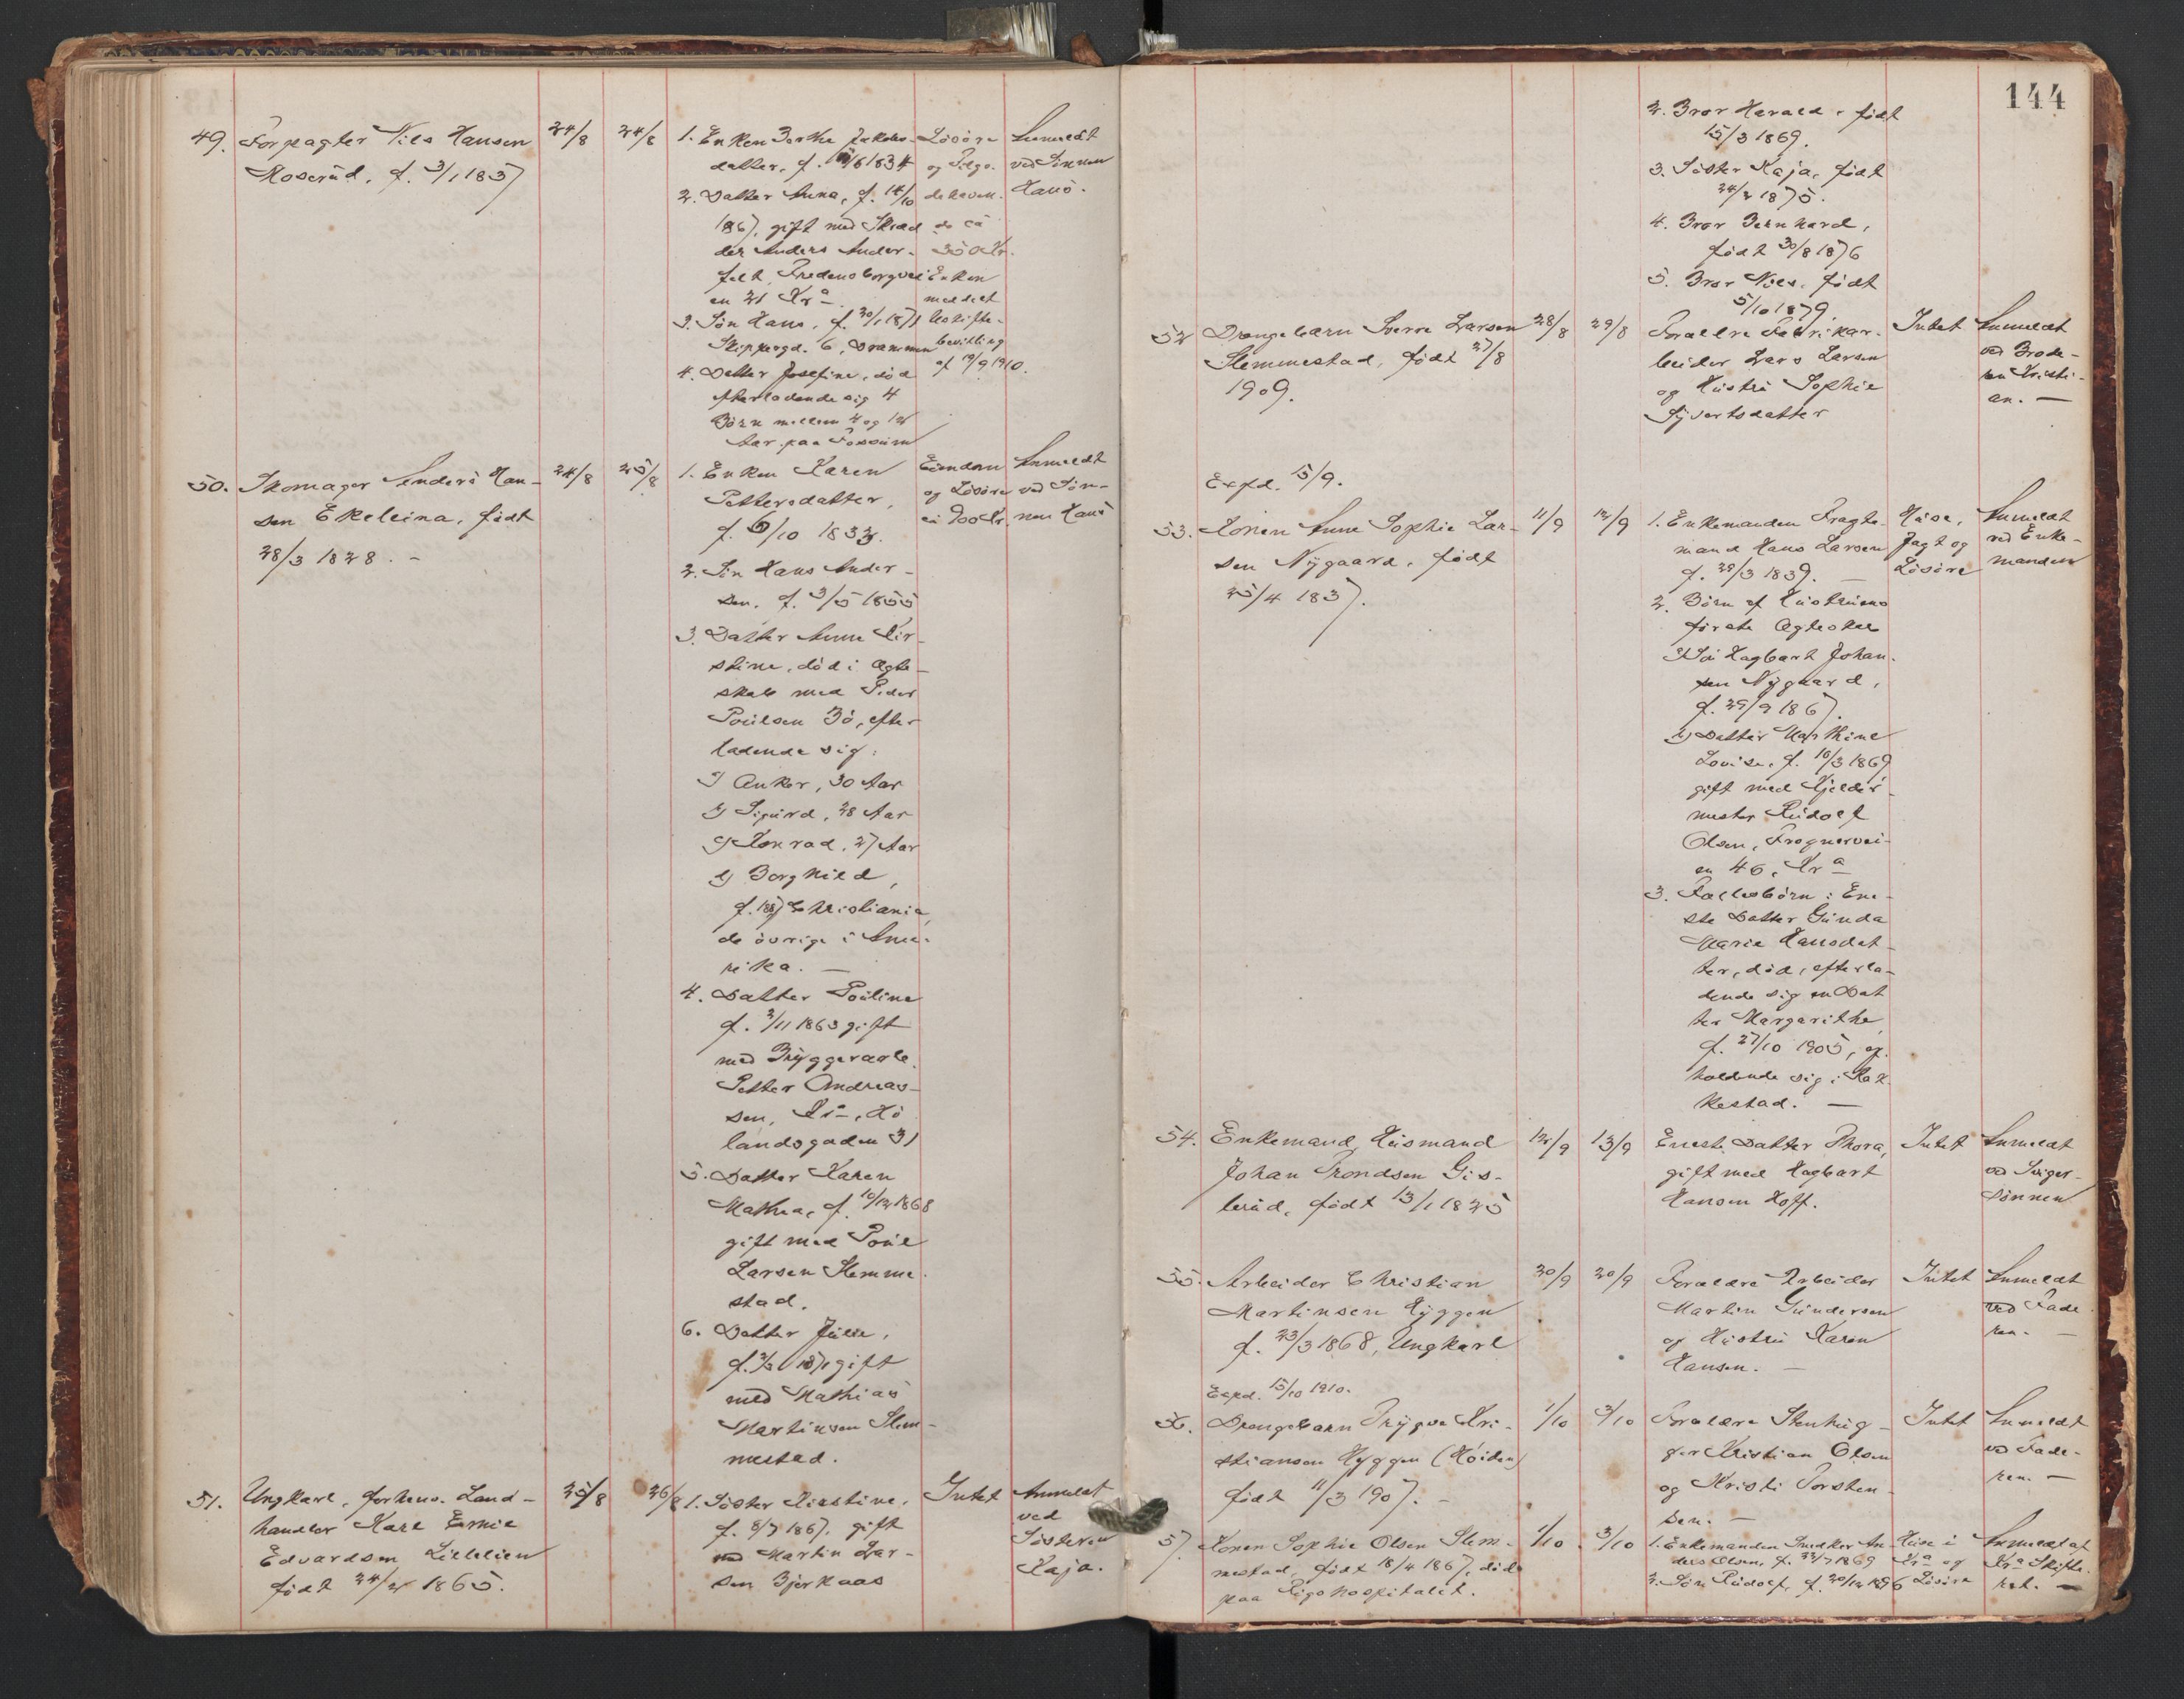 49. Forpagter Nils Hansen
Moserud, f. 3/1 1837
24/8
24/8
1. Enken Berthe Jakobs-
datter, f. /6 1834
2. Datter Anna, f. 14/10
1867, gift med Skræd
der Anders Ander-
Fredensborgvei
en 21 Kra
3. Søn Hans, f. 30/1 1871
Skippergd. 6, Drammen
4. Datter Josefine, død
efterladende sig 4
Börn mellem 4 og 12
Aar paa Fossum
Lösöre
og Tilgo-
dehaven-
de ca
350 Kr.
Enken
meddelt
Uskifte-
bevilling
af 19/9 1910.
Anmeldt
ved Sönnen
Hans.
50. Skomager Anders Han-
sen Ekeleina, født
28/3 1828. -
24/8
25/8
1. Enken Karen
Pettersdatter,
f. 6/10 1832.
2. Sön Hans Ander-
sen, f. 3/5 1855
3. Datter Anne Kir-
stine, död i Ægte-
skab med Peder
Poulsen Bö, efter
ladende sig:
a) Anker, 30 Aar
b) Sigurd, 28 Aar
c) Konrad, 27 Aar
d) Borghild,
f. 1887 Christiania,
de övrige i Ame-
rika. —
4. Datter Pouline
f. 2/11 1863 gift
med Bryggerarb.
Petter Andreas-
sen, Kra, Hö
landsgaden 31
5. Datter Karen
Mathea, f. 10/12 1868
gift med Poul
Larsen Slemme-
stad.
6. Datter Julie,
f. 2/2 1871 gift
med Mathias
Martinsen Slem-
mestad.
Eiendom
og Lösöre
ca 900 Kr.
Anmeldt
ved Sön-
nen Hans
51. Ungkarl, forhenv. Land-
handler Karl Emil
Edvardsen Lillelien
født 24/2 1865.
25/8
26/8
1. Söster Kirstine,
f. 8/7 1867, gift
med Martin Lar-
sen Bjerkaas
Intet
Anmeldt
ved
Sösteren
Kaja.
144
2. Bror Harald, født
15/3 1869.
3. Söster Kaja, født
24/2 1875.
4. Bror Bernhard,
født 30/8 1876
5. Bror Nils, født
5/10 1879.
52 Drengebarn Sverre Larsen
Slemmestad, født 27/8
1909.
28/8
29/8
Forældre Fabrikar-
beider Lars Larsen
og Hustru Sophie
Syvertsdatter
Intet
Anmeldt
ved Brode-
ren Kristi-
an. —
Expd. 15/9.
53. Konen Anne Sophie Lar-
sen Nygaard, født
25/4 1837.
11/9
12/9
1. Enkemanden Fragte-
mand Hans Larsen
f. 28/3 1839. —
2. Börn af Hustruens
förste Ægteskab
a) Sön Hagbart Johan-
sen Nygaard,
f. 29/9 1867.
b) Datter Mathine
Lovise, f. 16/3 1869
gift med Kjelder-
mester Rudolf
Olsen, Frognervei-
en 46, Kra
3. Fællesbörn: Ene-
ste Datter Gunda
Marie Hansdat-
ter, död, efterla-
dende sig en Dat
ter Margarithe,
f. 27/10 1905, op-
holdende sig i Rak-
kestad. —
Huse,
Jagt og
Lösöre
Anmeldt
ved Enke-
manden
54. Enkemand, Husmand
Johan Trondsen Gis-
lerud, født 13/1 1825
12/9
13/9
Eneste Datter Thora,
gift med Hagbart
Hansen Hoff.
Intet
Anmeldt
ved Sviger-
sönnen
55. Arbeider Christian
Martinsen Hyggen
f. 23/3 1868, Ungkarl
20/9
20/9
Forældre Arbeider
Martin Gundersen
og Hustru Karen
Hansen. —
Intet
Anmeldt
ved Fade-
ren. —
Expd. 15/10 1910.
56. Drengebarn Trygve Kri-
stiansen Hyggen (Höiden)
født 11/3 1907. -
1/10
3/10
Forældre Stenhug-
ger Kristian Olsen
og Kristi Torsten-
sen. —
Intet
Anmeldt
ved Fade-
ren. —
57. Konen Sophie Olsen Slem-
mestad, født 18/4 1867, död
paa Rigshospitalet.
1/10
3/10
1. Enkemanden Snedker An-
ders Olsen, f. 22/7 1869
2. Sön Rudolf, f. 20/12 1896
Huse i
Kra og
Lösöre
Anmeldt af
Kra Skifte-
ret. —